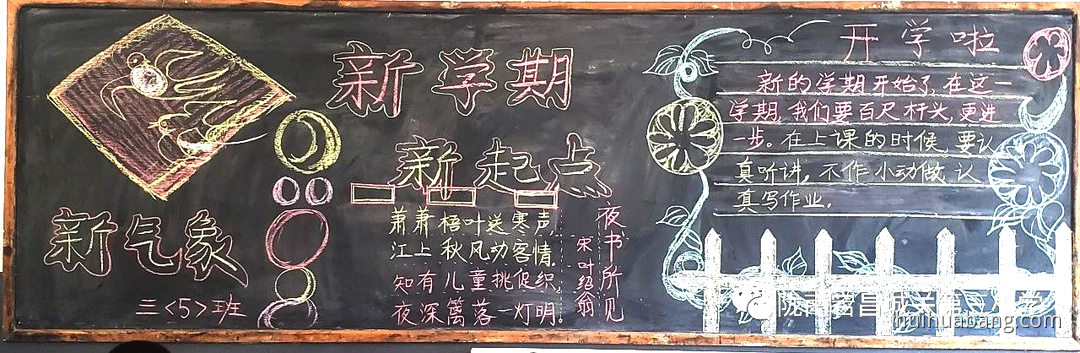 新学期
新起点
新气象
三<5>班
夜书所见
宋 叶绍翁
萧萧梧叶送寒声,
江上秋风动客情.
知有儿童挑促织,
夜深篱落一灯明。
开学啦
新的学期开始了,在这一
学期,我们要百尺杆头,更进
一步。在上课的时候,要认
真听讲,不作小动做,认
真写作业。
huihuabang.com